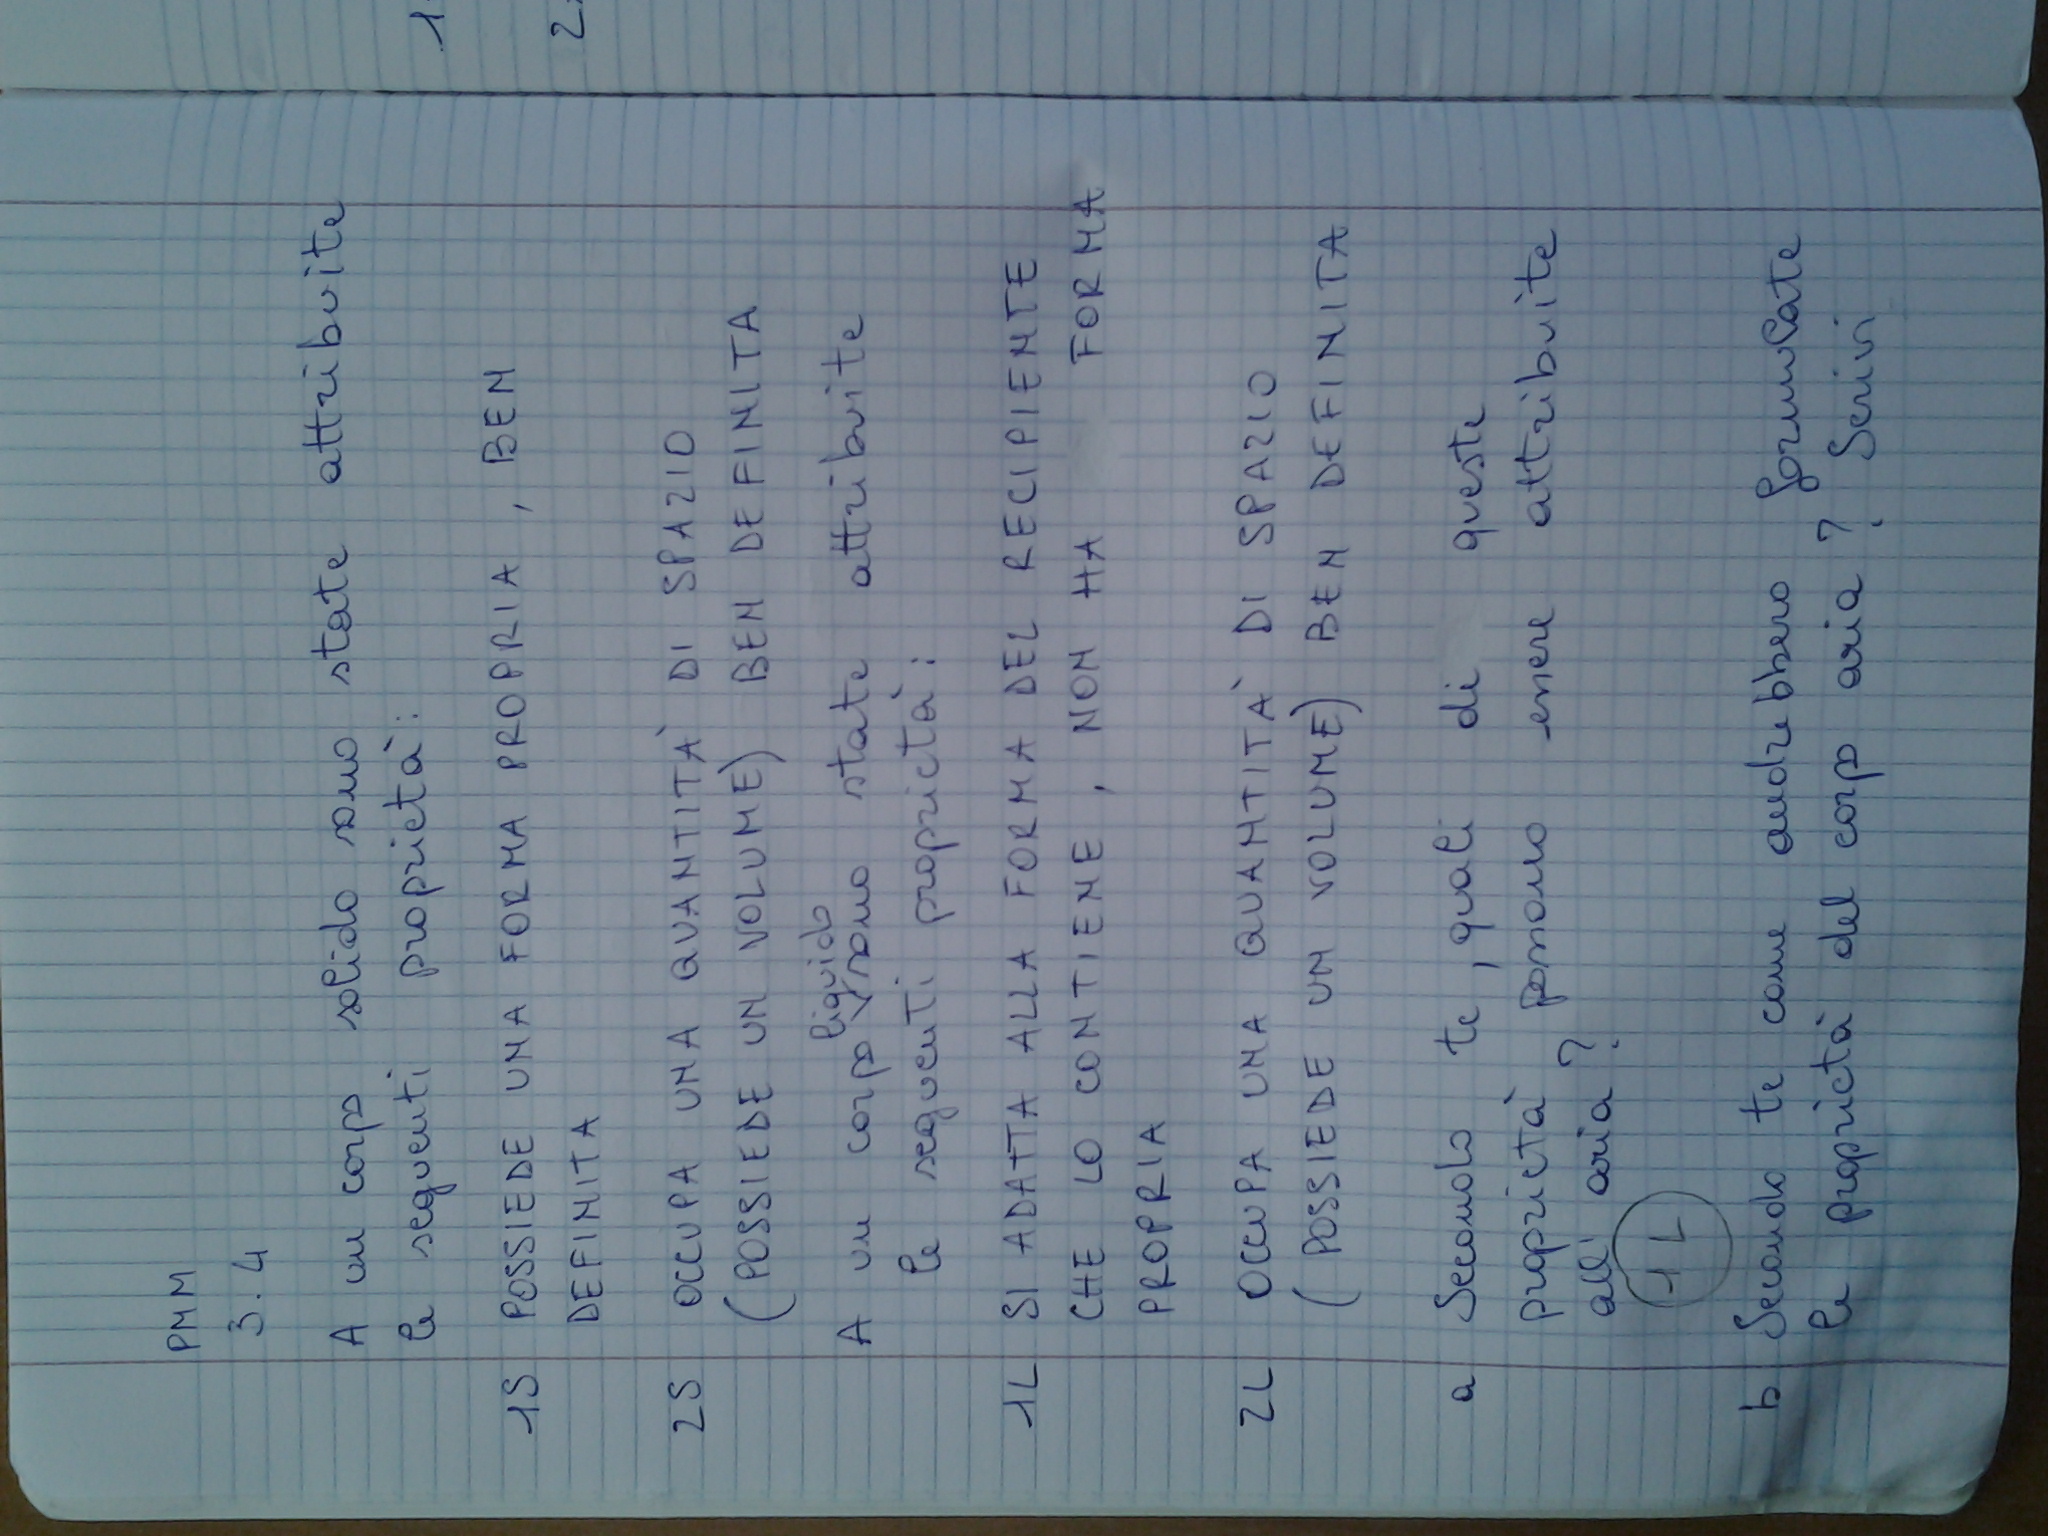 PMM
3.4
A un corpo solido sono state attribuite
le seguenti proprietà:
1S POSSIEDE UNA FORMA PROPRIA, BEN
DEFINITA
2S OCCUPA UNA QUANTITÀ DI SPAZIO
(POSSIEDE UN VOLUME) BEN DEFINITA
A un corpo liquido sono state attribuite
le seguenti proprietà:
1L SI ADATTA ALLA FORMA DEL RECIPIENTE
CHE LO CONTIENE, NON HA FORMA
PROPRIA
2L OCCUPA UNA QUANTITÀ DI SPAZIO
(POSSIEDE UN VOLUME) BEN DEFINITA
a Secondo te, quali di queste
proprietà possono essere attribuite
all'aria?
1L
b Secondo te come andrebbero formulate
le proprietà del corpo aria? Scrivi
1
2